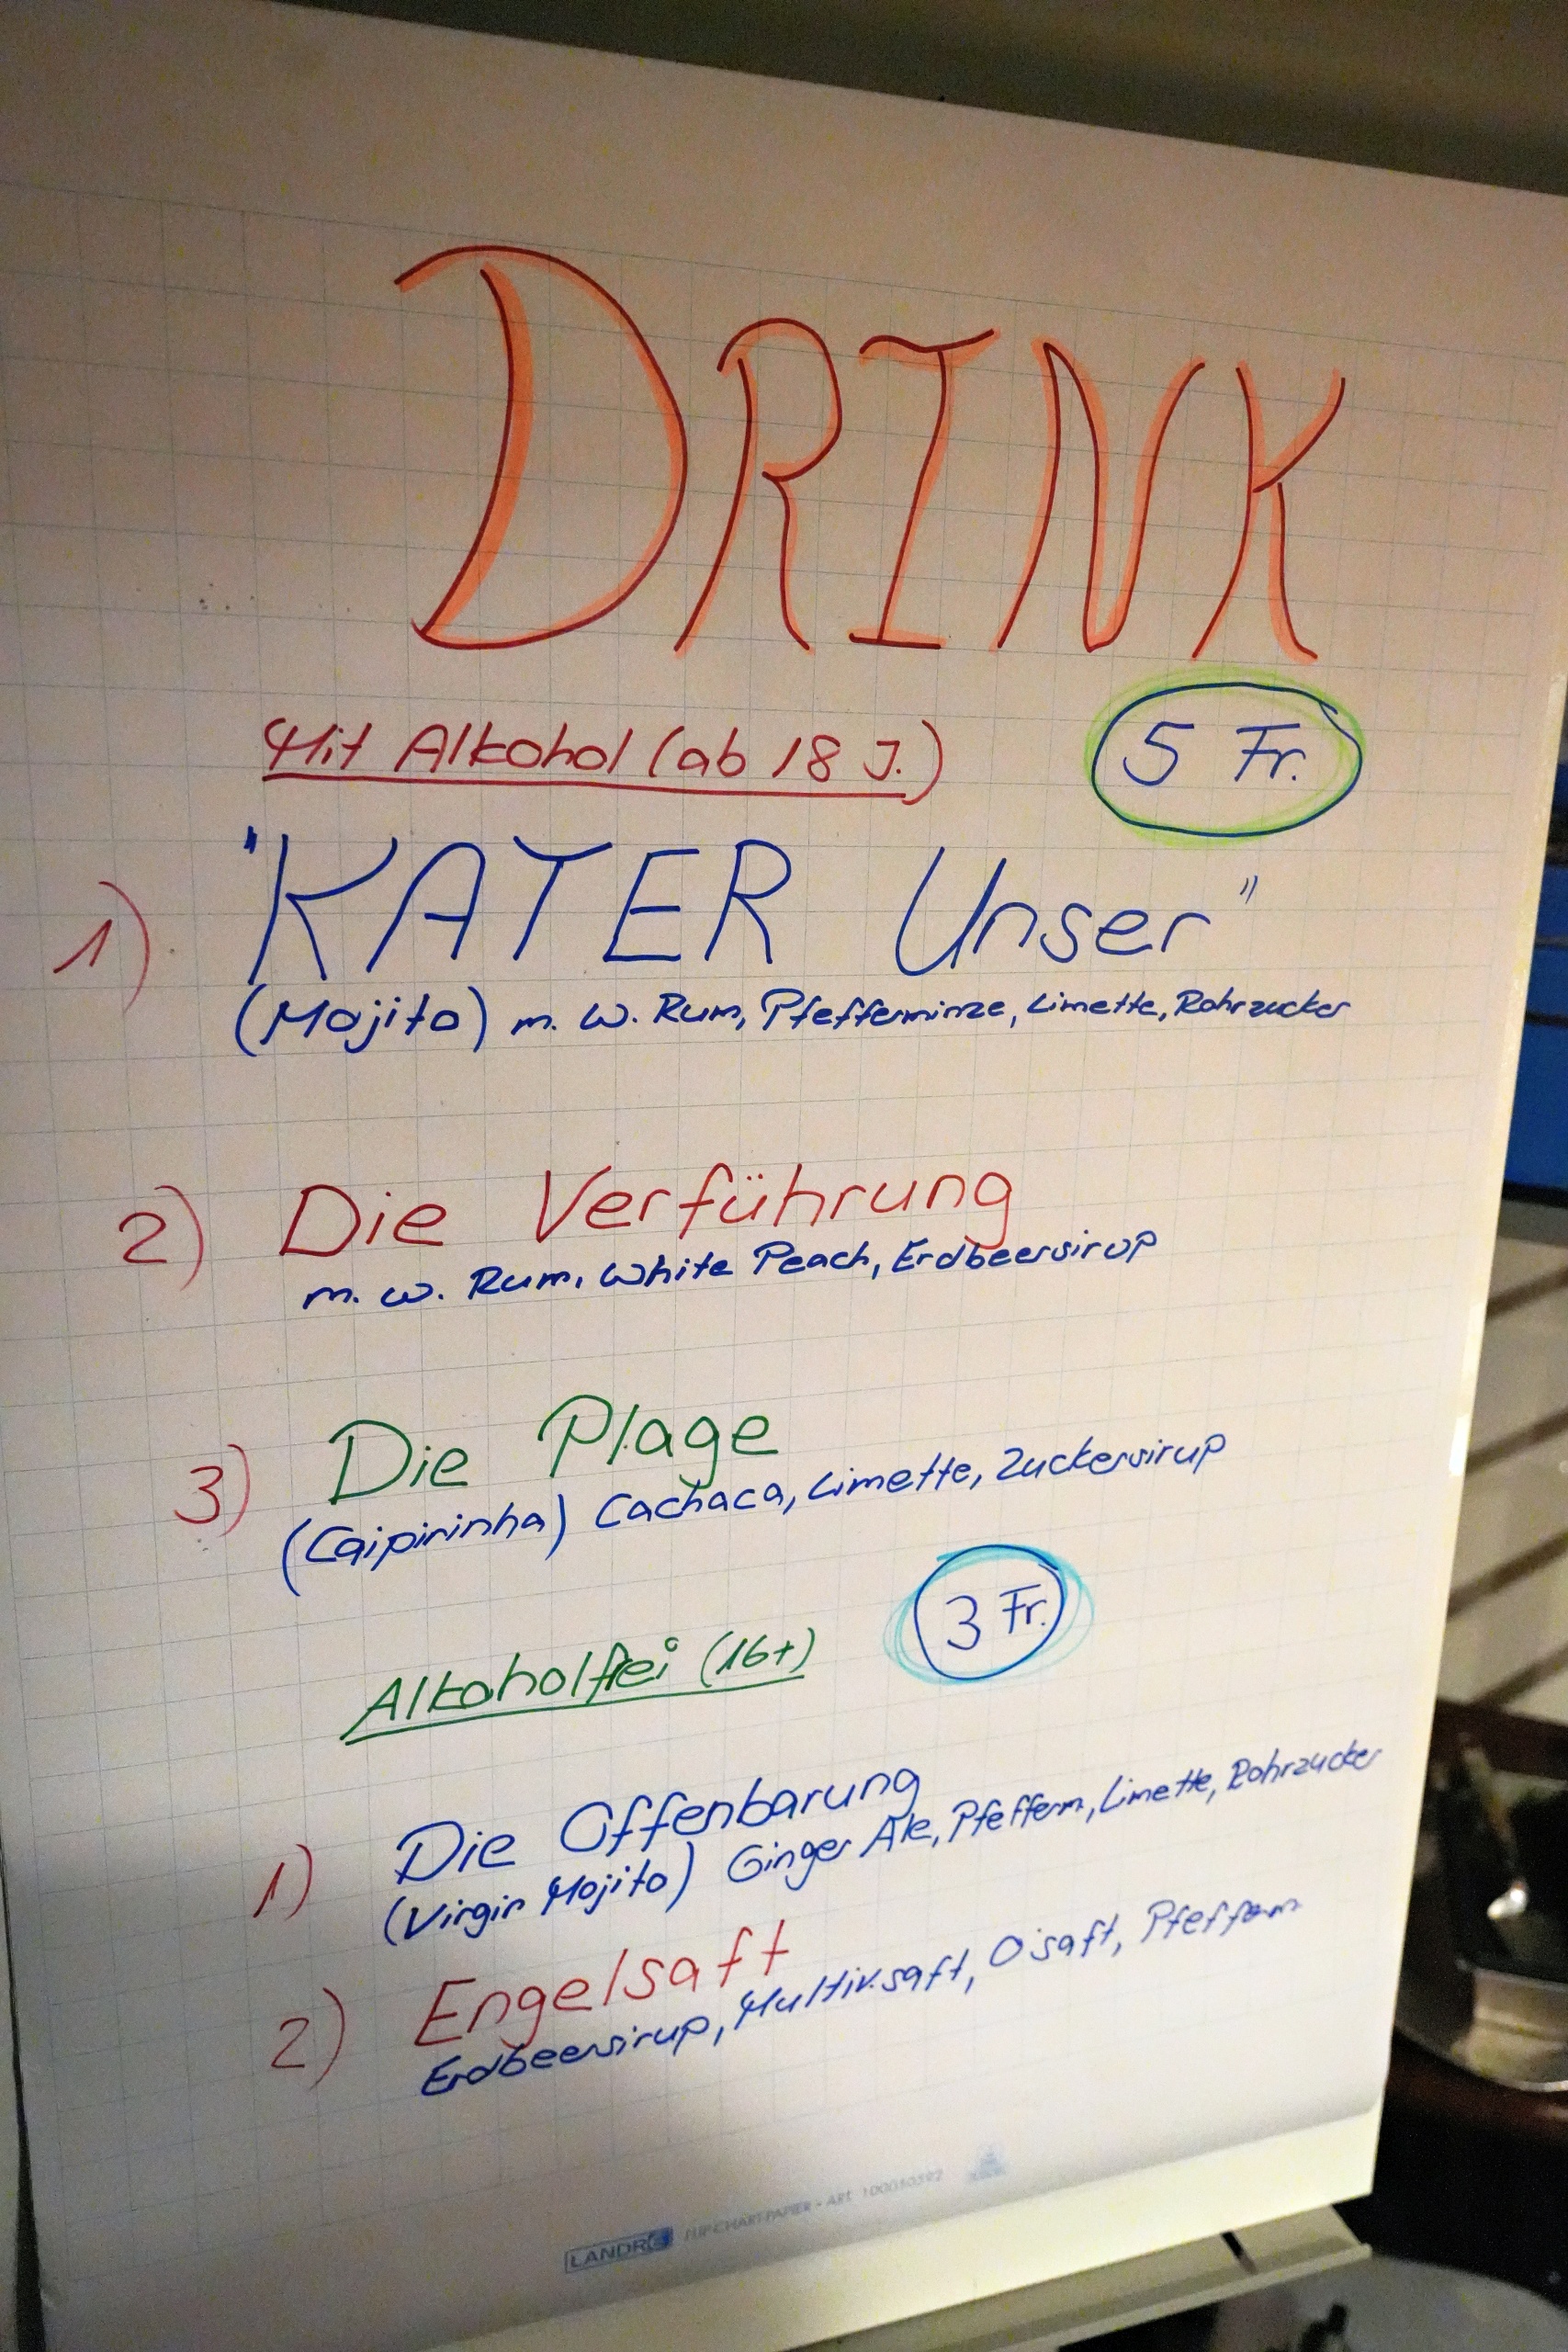 DRINK
Mit Alkohol (ab 18 J.) 5 Fr.
1) "KATER Unser"
(Mojito) m. w. Rum, Pfefferminze, Limette, Rohrzucker
2) Die Verführung
m. w. Rum, White Peach, Erdbeersirup
3) Die Plage
(Caipirinha) Cachaca, Limette, Zuckersirup
Alkoholfrei (16+) 3 Fr.
1) Die Offenbarung
(Virgin Mojito) Ginger Ale, Pfefferm, Limette, Rohrzucker
2) Engelsaft
Erdbeersirup, Multiv.saft, O'saft, Pfefferm
LANDRÉ FLIP-CHART-PAPIER - ART.